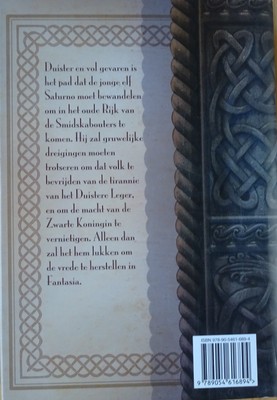 Duister en vol gevaren is
het pad dat de jonge elf
Saturno moet bewandelen
om in het oude Rijk van
de Smidskabouters te
komen. Hij zal gruwelijke
dreigingen moeten
trotseren om dat volk te
bevrijden van de tirannie
van het Duistere Leger,
en om de macht van de
Zwarte Koningin te
vernietigen. Alleen dan
zal het hem lukken om
de vrede te herstellen in
Fantasia.
ISBN 978-90-5461-689-4
9 789054 616894 >